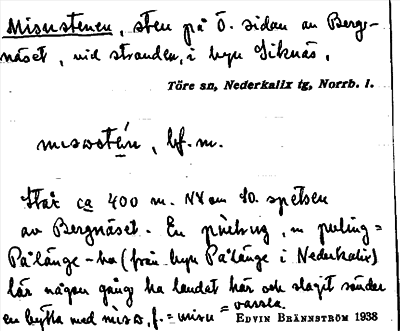 Misustenen, sten på Ö. sidan av Bergnäset, vid stranden, i byn Siknäs.
Töre sn, Nederkalix tg, Norrb. l.
bf. m.
Står ca 400 m. NV om SO. spetsen
av Bergnäset. En
Pålänge- (från byn Pålänge i Nederkalix)
lär någon gång ha landat här och slagit sönder
en bytta med misu, f. = misu = vassla.
EDVIN BRÄNNSTRÖM 1938